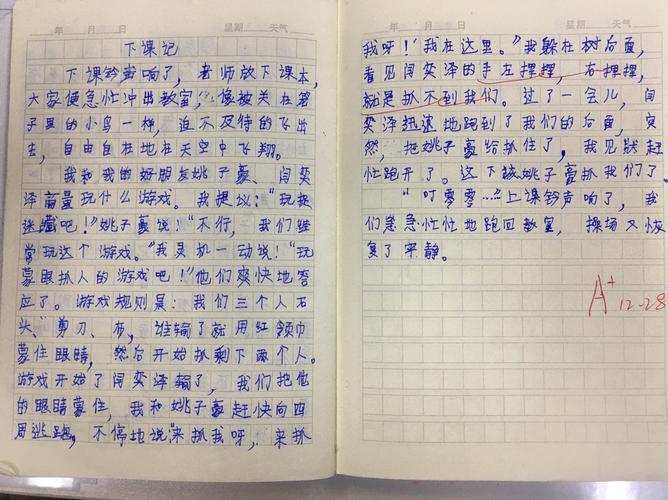 年 月 日 星期 天气
下课记
下课铃声响了，老师放下课本，
大家便急忙冲出教室，像被关在笼
子里的小鸟一样，迫不及待的飞出
去，自由自在地在天空中飞翔。
我和我的好朋友姚子豪、闫奕
泽商量玩什么游戏。我提议：“玩捉
迷藏吧！”姚子豪说：“不行，我们经
常玩这个游戏。”我灵机一动说：“玩
蒙眼抓人的游戏吧！”他们爽快地答
应了。游戏规则是：我们三个人石
头、剪刀、布，谁输了就用红领巾
蒙住眼睛，然后开始抓剩下两个人。
游戏开始了闫奕泽输了，我们把他
的眼睛蒙住，我和姚子豪赶快向四
周逃跑，不停地说“来抓我呀，来抓
年 月 日 星期 天气
我呀！我在这里。”我躲在树后面，
看见闫奕泽的手左摸摸，右摸摸，
就是抓不到我们。过了一会儿，闫
奕泽迅速地跑到了我们的后面，突
然，把姚子豪给抓住了，我见状赶
忙跑开了。这下被姚子豪抓我们了。
“叮零零……”上课铃声响了，我
们急急忙忙地跑回教室，操场又恢
复了平静。
A+
12-28